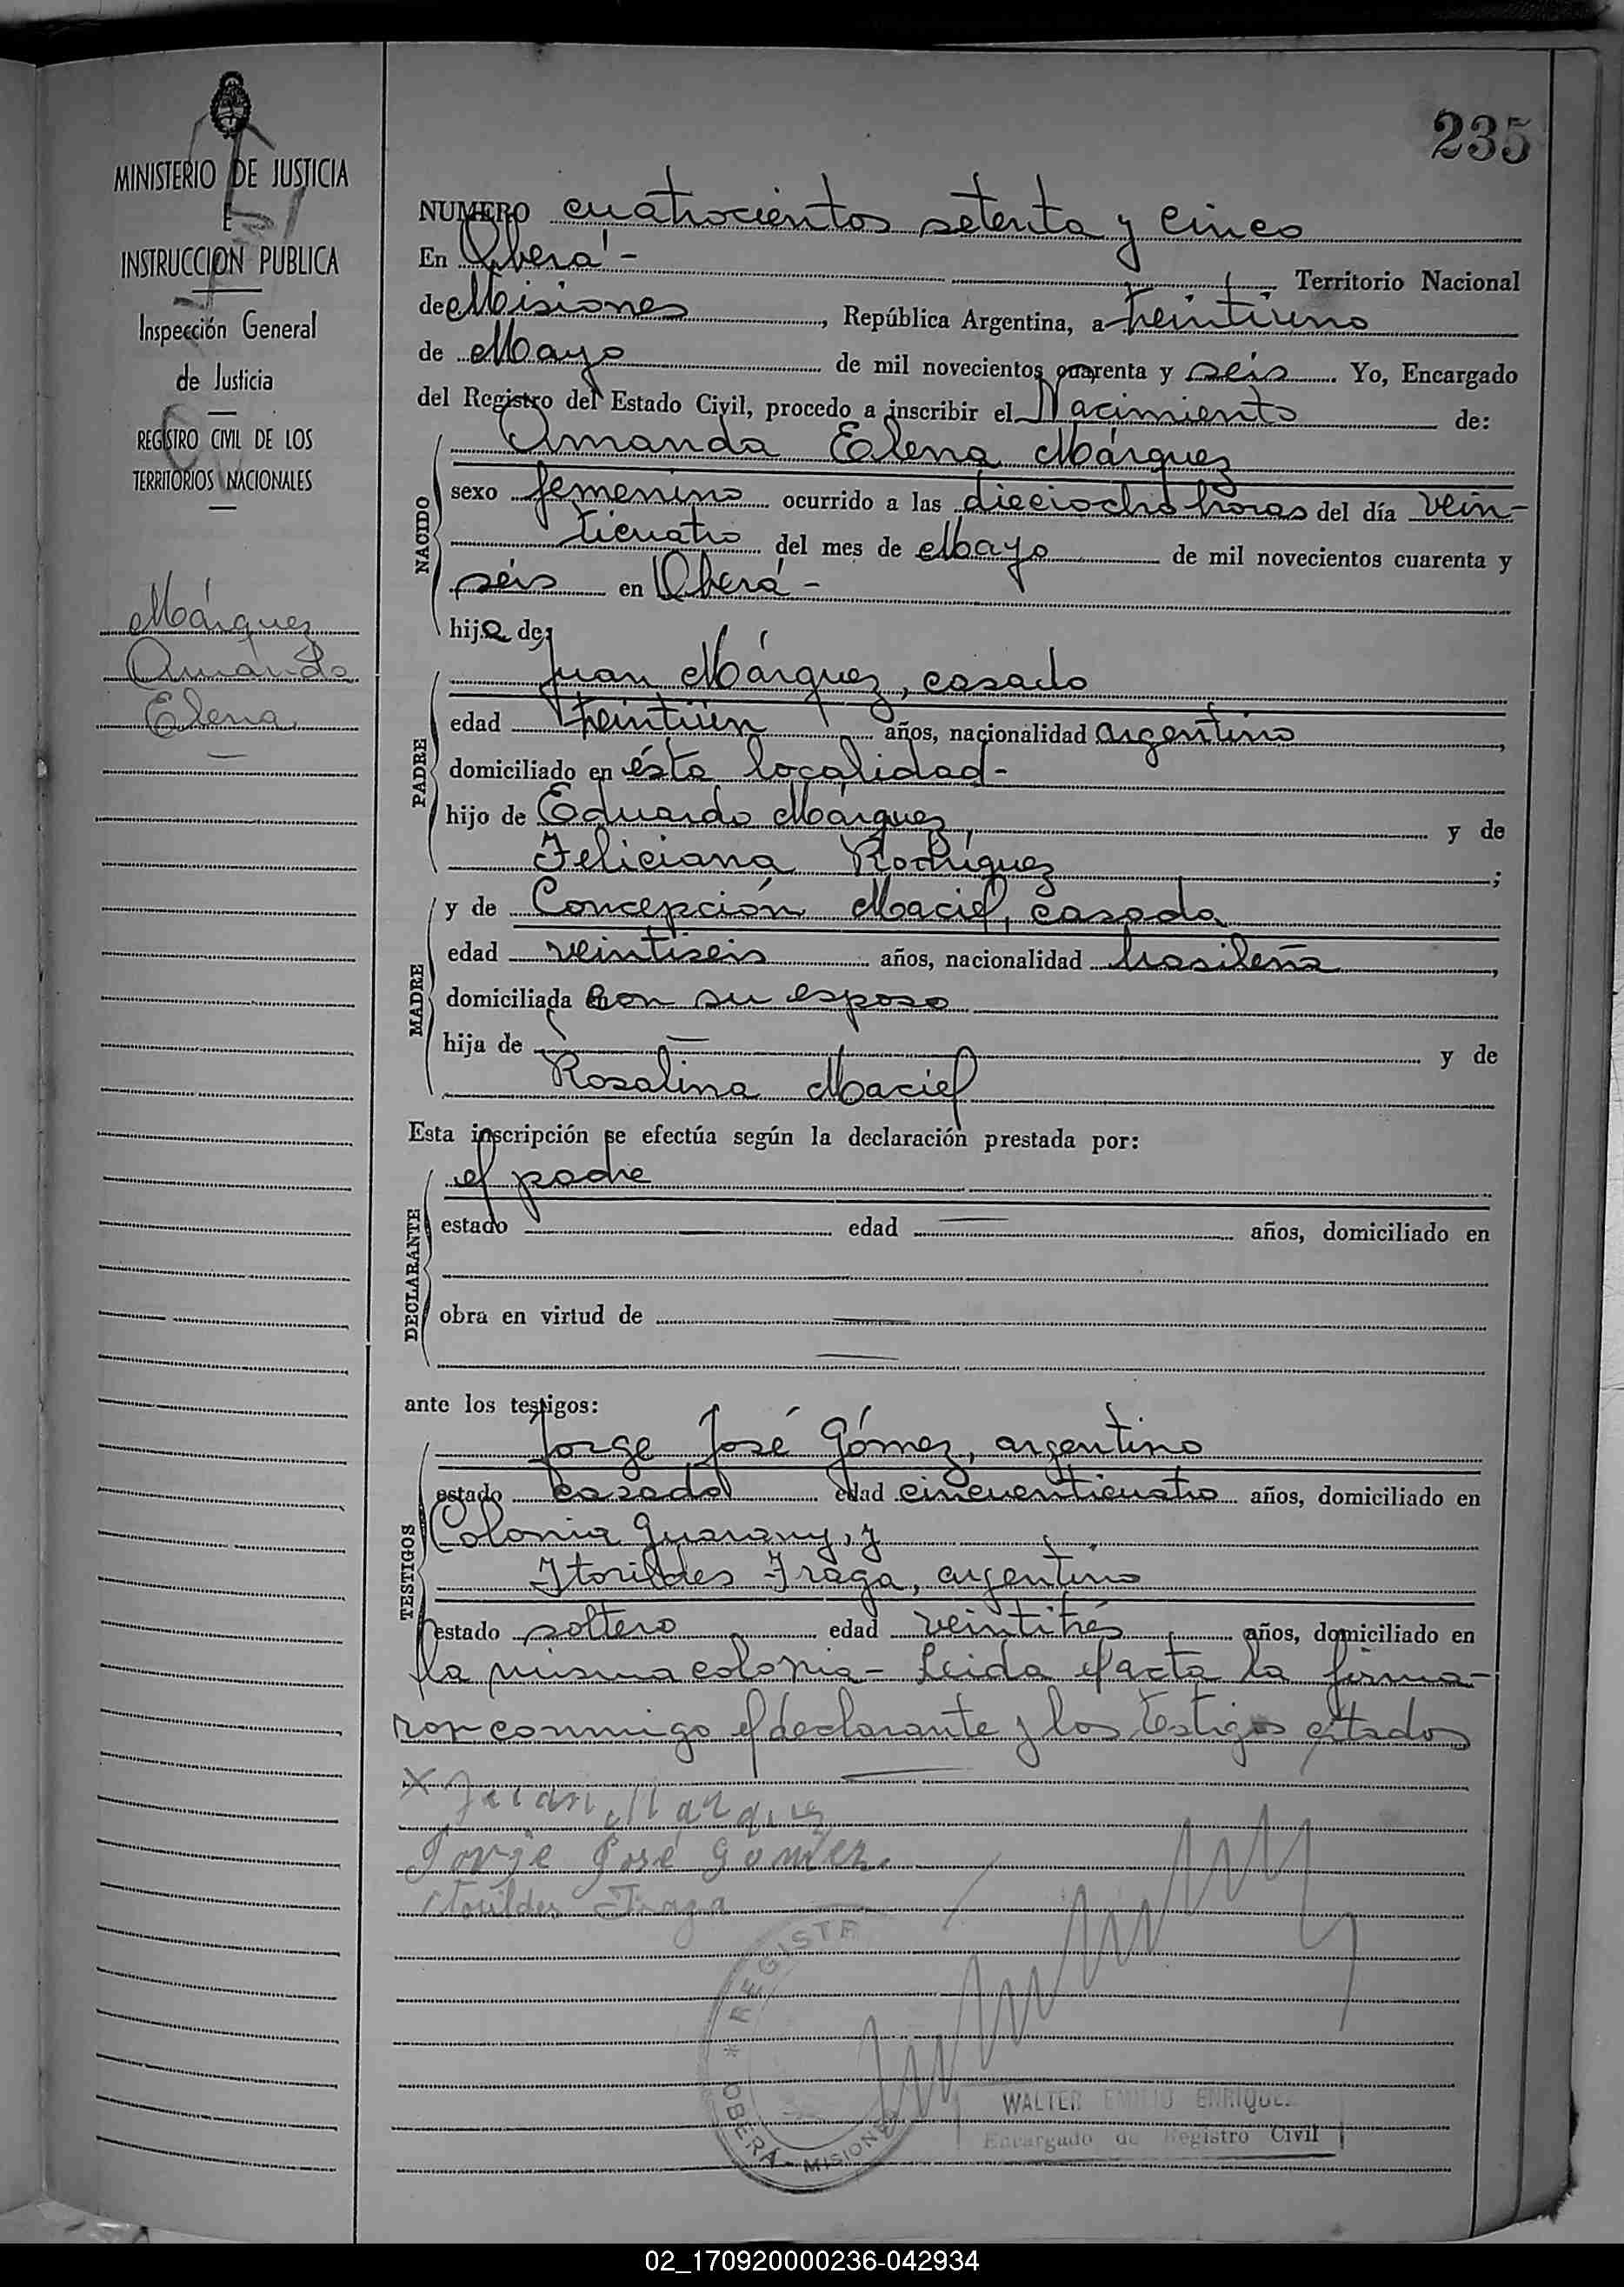 235
MINISTERIO DE JUSTICIA
E
INSTRUCCION PUBLICA
Inspección General
de Justicia
REGISTRO CIVIL DE LOS
TERRITORIOS NACIONALES
Márquez
Amanda
Elena
NUMERO cuatrocientos setenta y cinco
En Oberá - Territorio Nacional
de Misiones, República Argentina, a treintiuno
de Mayo de mil novecientos cuarenta y seis. Yo, Encargado
del Registro del Estado Civil, procedo a inscribir el Nacimiento de:
Amanda Elena Márquez
NACIDO
sexo femenino ocurrido a las dieciocho horas del día vein-
ticuatro del mes de Mayo de mil novecientos cuarenta y
seis en Oberá -
hija de:
Juan Márquez, casado
PADRE
edad treintiún años, nacionalidad argentino,
domiciliado en ésta localidad -
hijo de Eduardo Márquez, y de
Feliciana Rodríguez;
y de Concepción Maciel, casada
MADRE
edad veintiseis años, nacionalidad brasileña,
domiciliada con su esposo
hija de — y de
Rosalina Maciel
Esta inscripción se efectúa según la declaración prestada por:
el padre
DECLARANTE
estado — edad — años, domiciliado en
obra en virtud de —
ante los testigos:
Jorge José Gómez, argentino
TESTIGOS
estado casado edad cincuenticuatro años, domiciliado en
Colonia Guarany, y
Itorildes Fraga, argentino
estado soltero edad veintitrés años, domiciliado en
la misma colonia - Leida el acta la firma-
ron conmigo el declarante y los testigos citados
X Juan Marquez
Jorge José Gomez.
Itorildes Fraga
REGISTR
* OBERA - MISIONES
WALTER EMILIO ENRIQUEZ
Encargado de Registro Civil
02_170920000236-042934